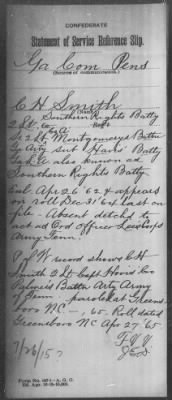 CONFEDERATE
Statement of Service Reference Slip.
Ga Com Pens
(Source of communication.)
C H Smith
(Name)
Southern Rights Batty
2 Lt. Co.
2 Lt. Montgomerys Battn
Ga Arty Sub Havis' Batty
Ga L A also known as
Southern Rights Batty
Enl. Apr 26 '62 & appears
on roll Dec 31 '64 last on
file - Absent detchd to
act as Ord officer
Army Tenn.
P of W record shows C H
Smith 2 Lt Capt Havis' Co
Palmers Battn Arty Army
of Tenn paroled at Greens
boro NC - , 65. Roll dated
Greensboro NC Apr 27 '65
7/26/15